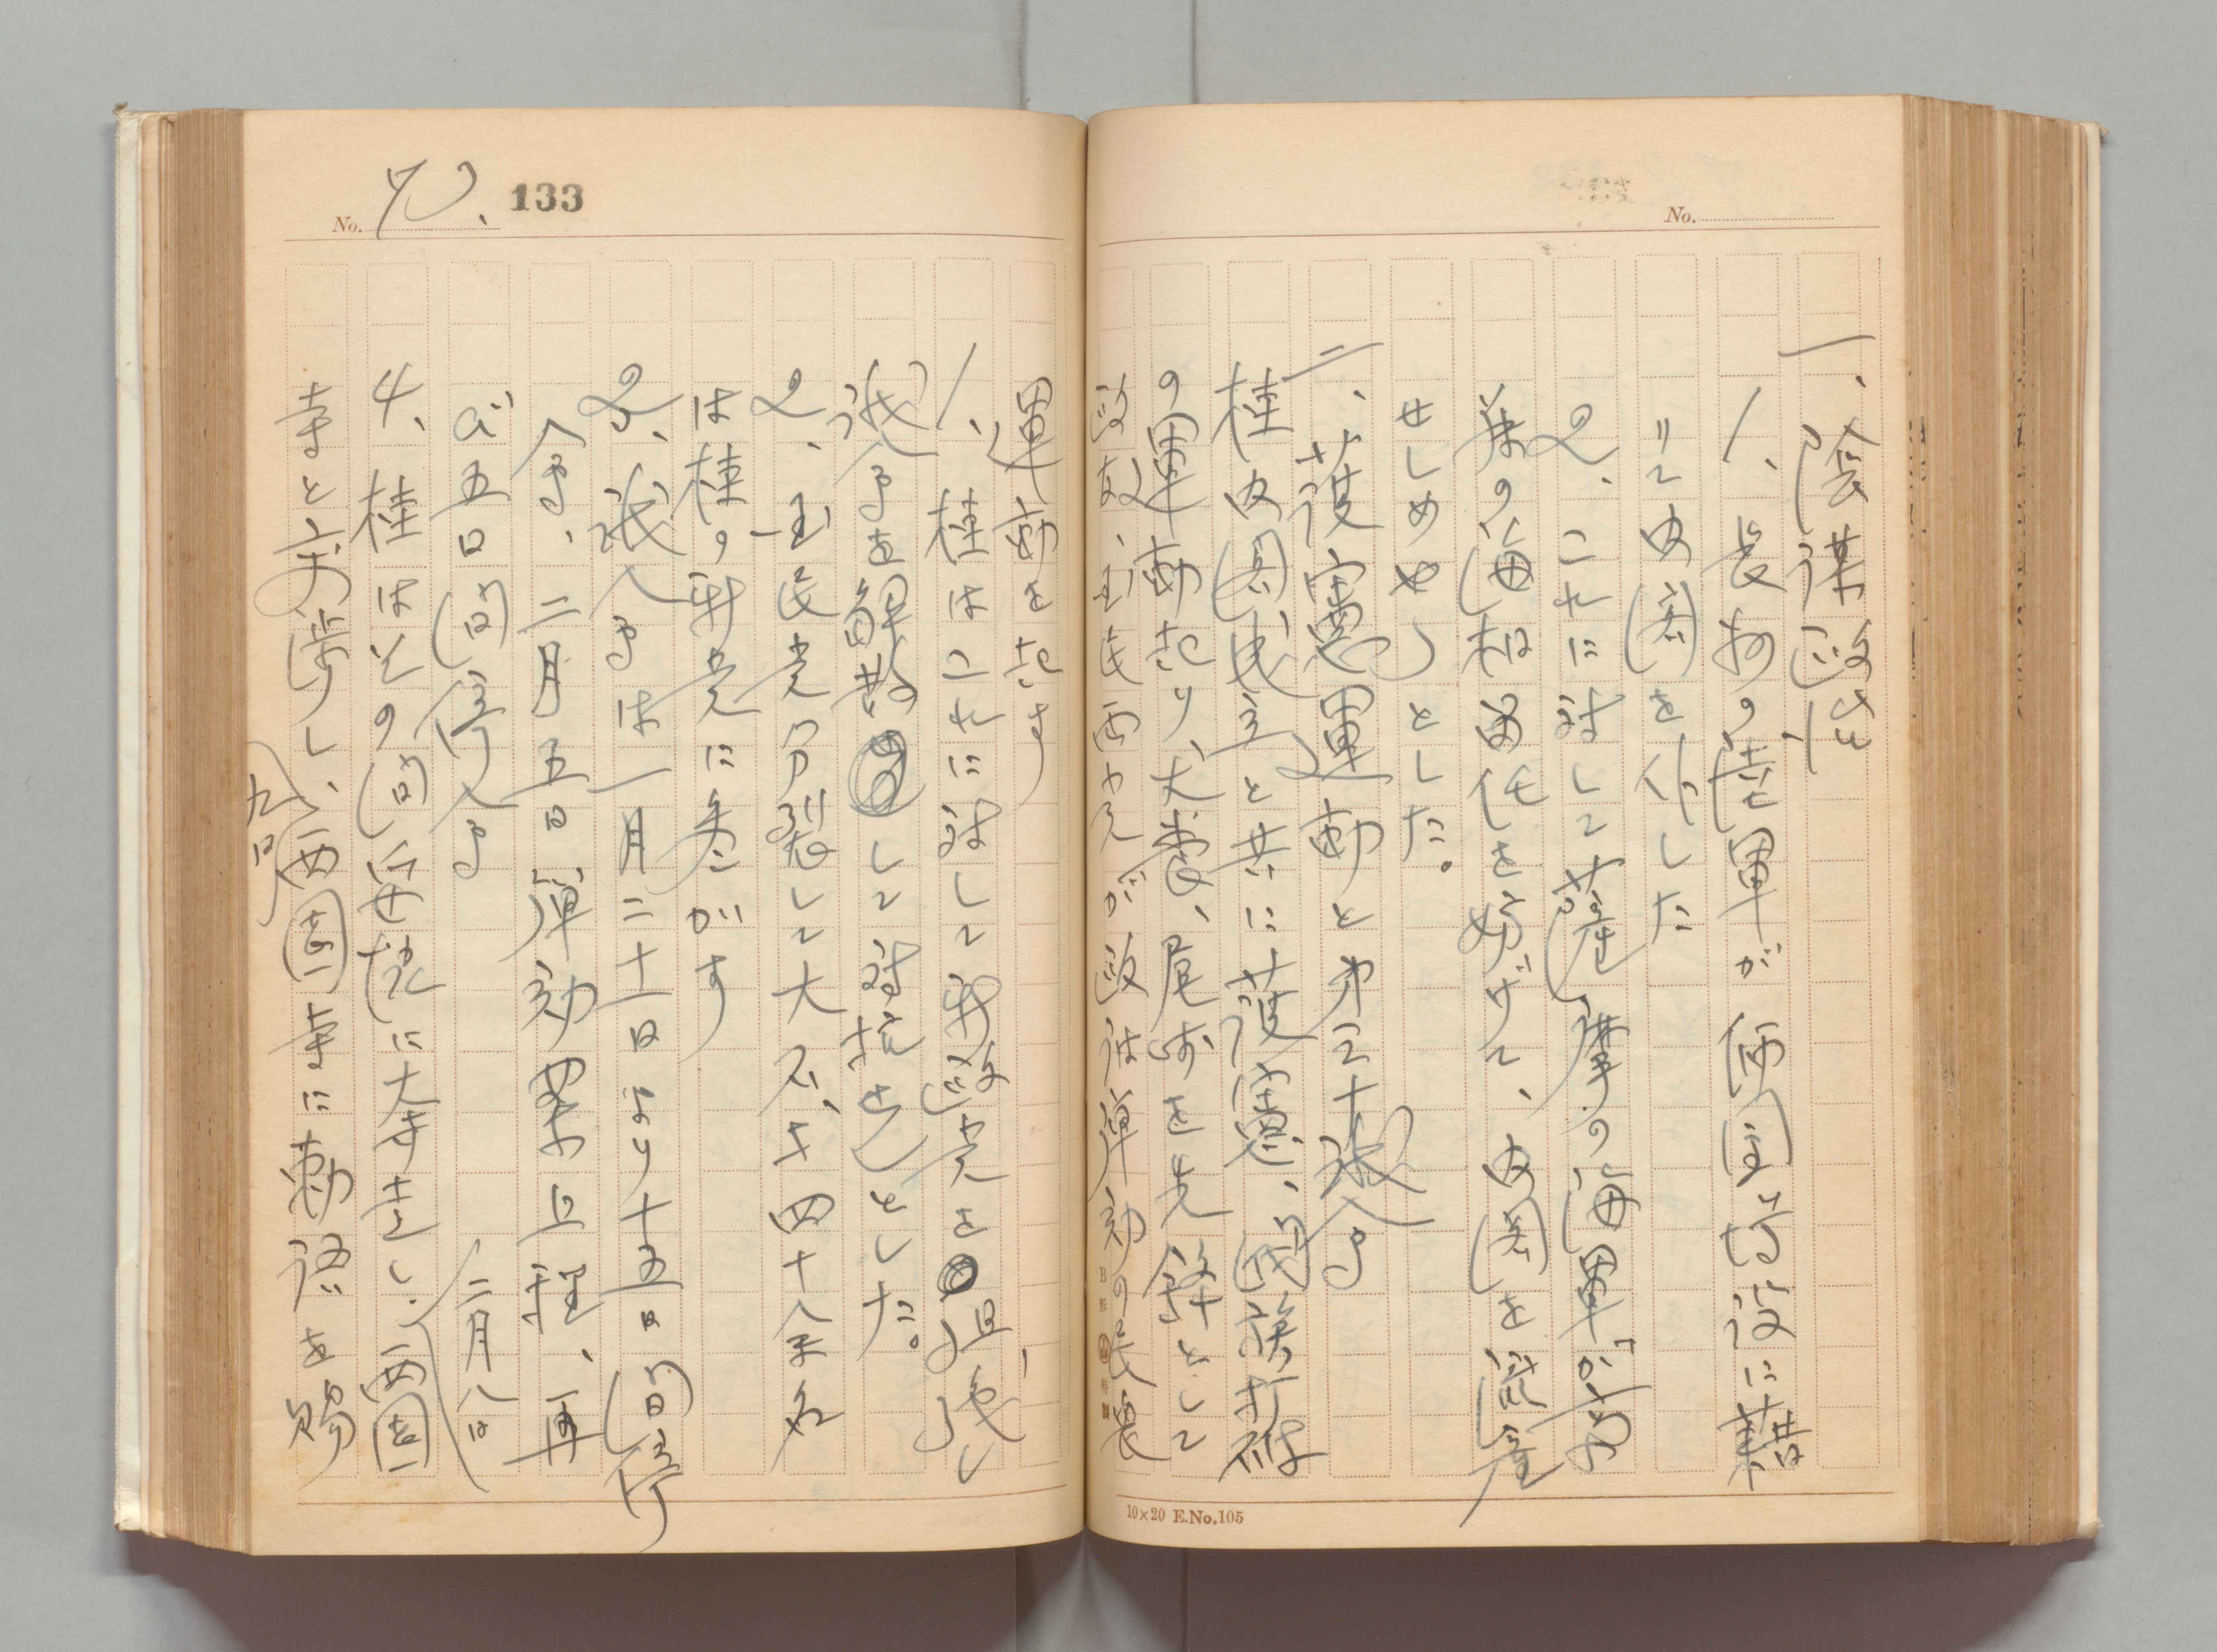 No.
一、陰謀政治
1、長州の陸軍が西園寺候に藉
りて内閣を仆した
2、これに対して薩摩の海軍が斉藤
の海相留任を妨げて、内閣を流産
せしめやうとした。
二、護憲運動と第三十議会
桂内閣成立と共に護憲、閥族打破
の運動起り、犬養、尾崎を先鋒として
政友、国民両党が政府弾劾の民衆
10×20 E.No.105
No. 70. 133
運動を起す
1、桂はこれに対して新政党を組織し、
議会を解散して対抗せんとした。
2、国民党分裂して大石等四十八余名
は桂の新党に参加す
3、議会は一月二十一日より十五日間停
会、二月五日弾劾案上程、再
び五日間停会
4、桂はその間に妥協に大童し、西園
寺と交渉し、西園寺に勅語を賜
二月八日
九日